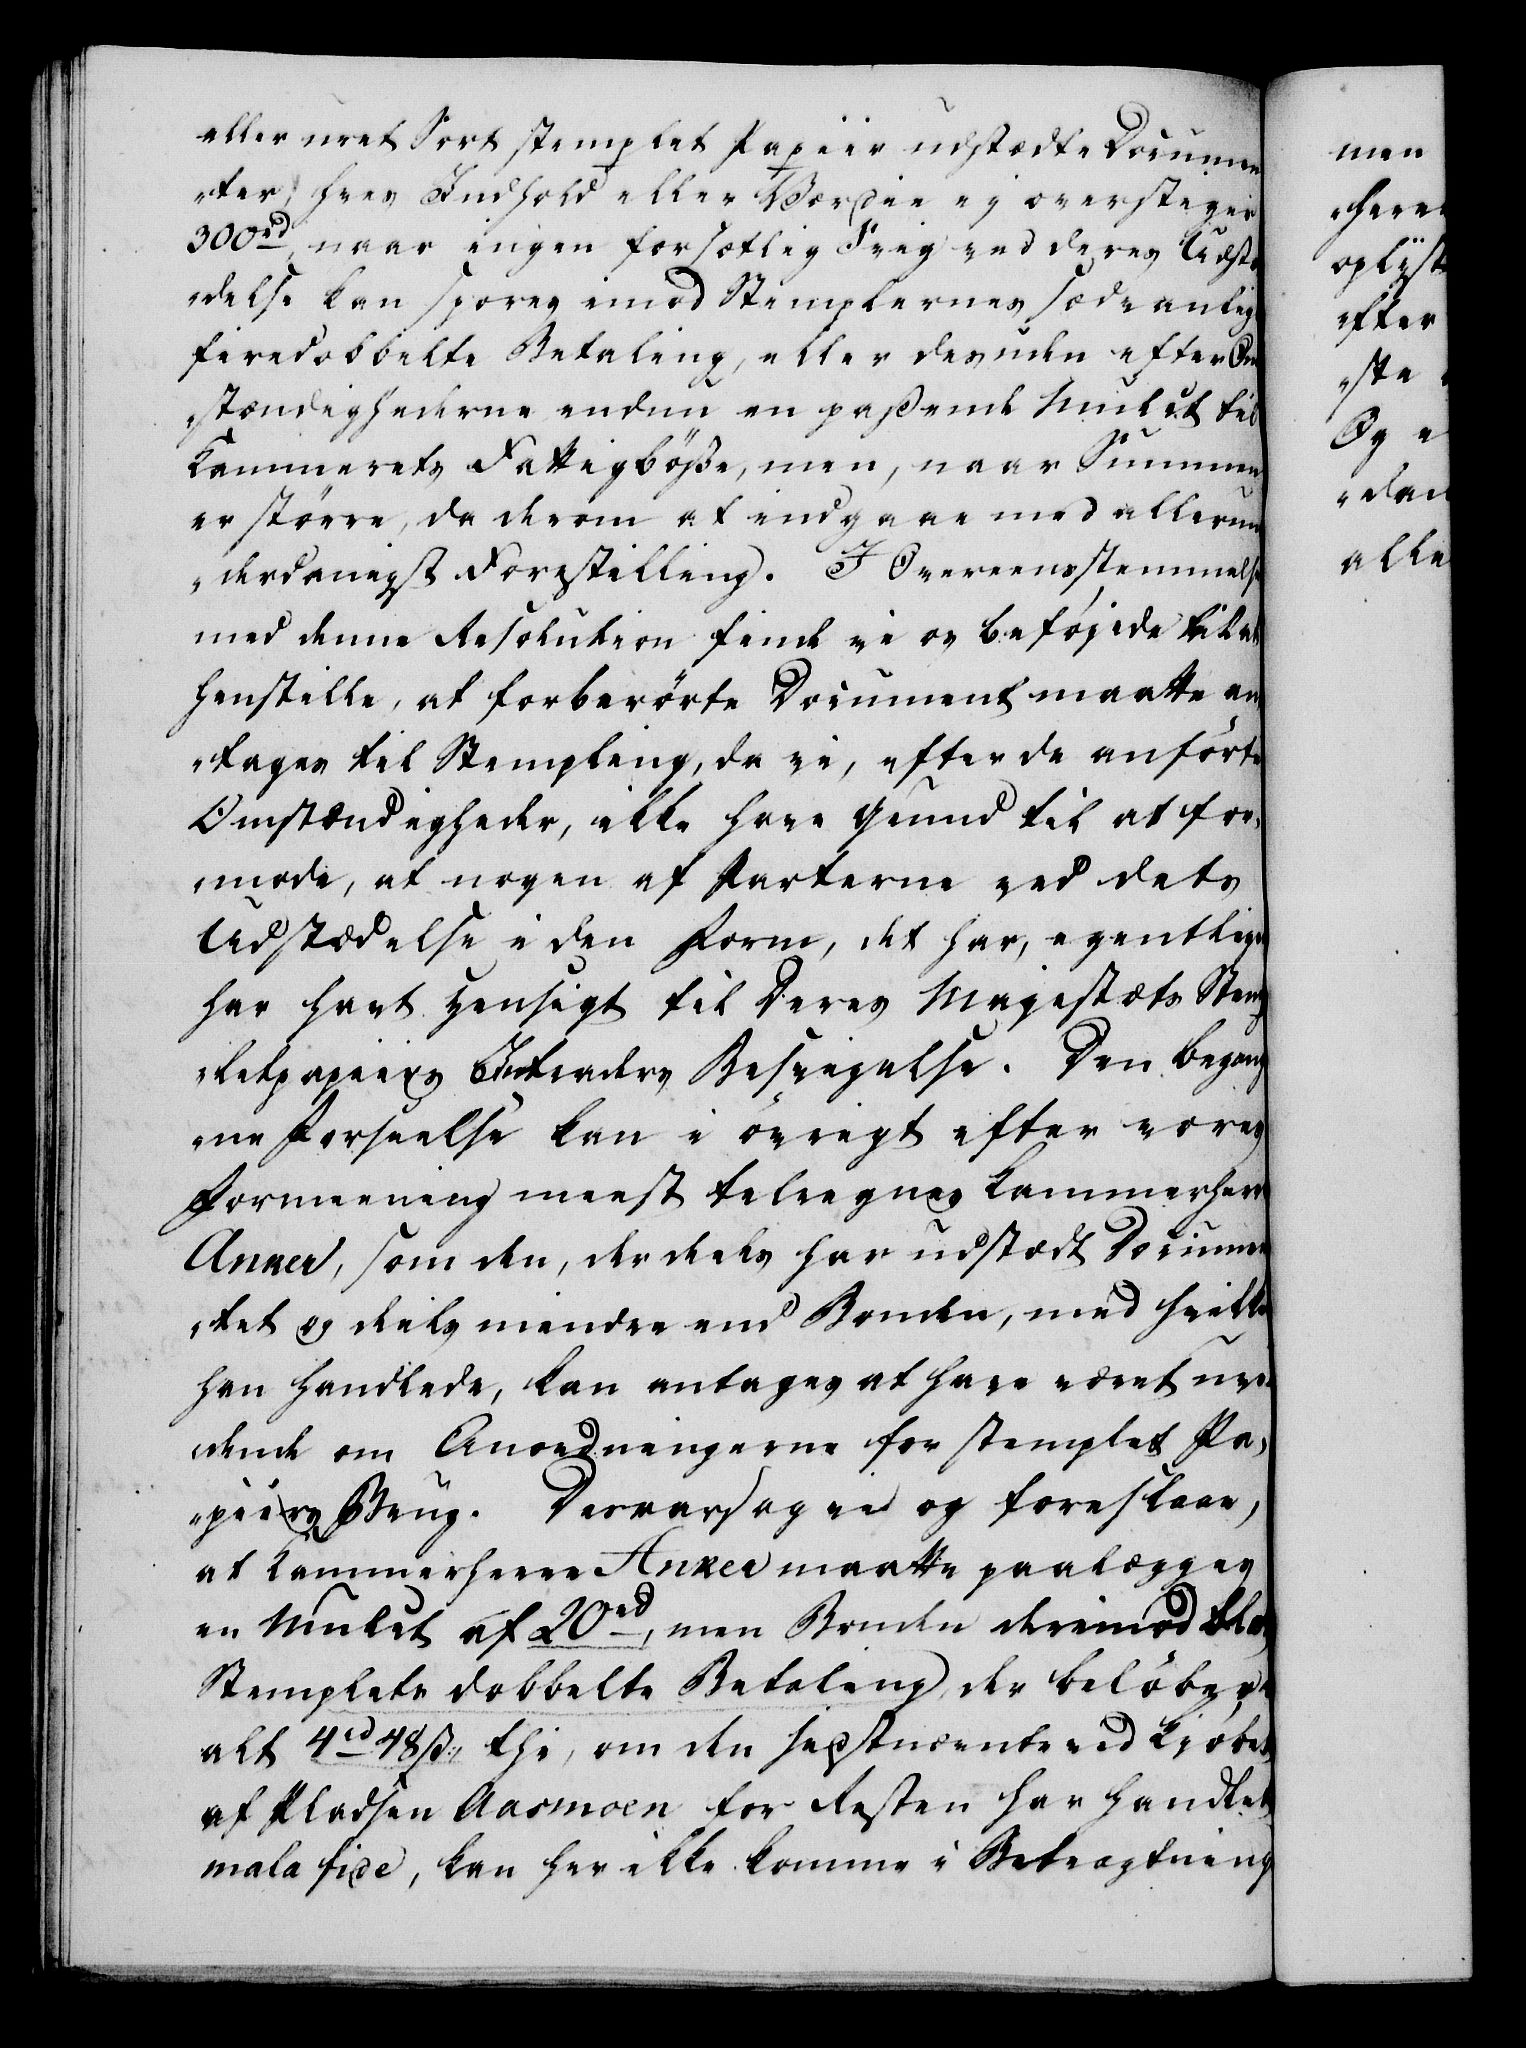 eller uret Sort stemplet Papiir udstædte Documen
„ter, hvis Indhold eller Værdie ej overstiger
300rd, naar ingen forsætlig Svig ved deres Udstæ
„delse kan spores imod Stemplernes sædvanlig
firedobbelte Betaling, eller desuden efter Om
„stændighederne endnu en passende Mulct til
Kammerets Fattigbösse, men, naar Summen
er större, da derom at indgaae med allerun
„derdanigst Forestilling. I Overeensstemmelse
med denne Resolution finde vi os beföjede til at
henstille, at forberörte Document maatte an
„tages til Stempling, da vi, efter de anförte
Omstændigheder, ikke have Grund til at for„
„mode, at nogen af Parterne ved dets
Udstædelse i den Form, det har, egentlige
har havt Hensigt til Deres Majestæts Stemp
„letpapiirs Intraders Besvigelse. Den begang
„ne Forseelse kan i övrigt efter vores
Formeening meest tilregnes Kammerherr
Anker, som den, der deels har udstædt Documen
„tet og deels mindre end Bonden, med hvilken
han handlede, kan antages at have været uvi
„dende om Anordningerne for stemplet Pa„
„piirs Brug. Desaarsag vi og foreslaae,
at Kammerherre Anker maatte paalægges
en Mulct af 20rd, men Bonden derimod blot
Stemplets dobbelte Betaling, der belöber i
alt 4rd 48ß, thi, om den sidstnævnte ved Kjöbet
af Pladsen Aasmoen for Resten har handlet
mala fide, kan her ikke komme i Betragtning
men
„herre
oplyst
efter
„ste
Og
„dan
alle